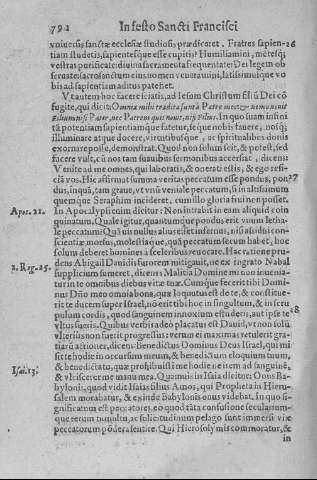 792 In festo Sancti Francisci
vniuersus sanctæ ecclesiæ studiosis prædiceret. Fratres sapien- 26
tiam studetis, sapientesque esse cupitis? Humiliamini,
vestras purificate: diuina sacramenta frequentate: Dei legem
obseruate: sacrosanctum eius nomen veneramini, latissimusque vo
bis ad sapientiam aditus patebit.
Vt autem hoc facere sciatis, ad Iesum Christum filiũ Dei cõ
fugite, qui dicit: Omnia mihi tradita sunt à Patre meo, & nemo nouit
Filium nisi Pater, nec Patrem quis nouit, nisi Filius. In quo suam infini
tã potentiam sapientiamque fatetur, seque nobis fauere, nosque
illuminare atque docere, virtutibusque, ac spiritualibus donis
exornare posse, demonstrat. Quod non solum scit, & potest, sed
facere vult, cũ nos tam suauibus sermonibus accersat, dicens:
Venite ad me omnes, qui laboratis, & onerati estis, & ego refi-
ciã vos. Hic affirmat summa veritas peccatum esse pondus, pon 27
dus, inquã, tam graue, vt vnũ veniale peccatum, si in altissimum
quemque Seraphim incideret, cum illo gloria frui non posset.
Apoc. 21. In Apocalypsi enim dicitur: Non intrabit in eam aliquid coin
quinatum. Quale igitur, quantumque pondus erit vnum letha-
le peccatum? Quã uis nullus alius esset infernus, nisi assidui con-
scientiæ morsus, molestiæque, quã peccatum secum habet, hoc
solum deberet homines à sceleribus reuocare. Hac ratione pru-
dens Abigail Dauidis furorem mitigauit, ne ex ingrato Nabal
2. Reg. 25. supplicium sumeret, dicens: Malitia Domine mi non inuenia-
tur in te omnibus diebus vitæ tuæ. Cumque fecerit tibi Domi-
nus Dño meo omnia bona, quæ loquutus est de te, & constitue-
rit te ducem super Israel, nõ erit tibi hoc in singultum, & in scru
pulum cordis, quod sanguinem innoxium effuderis, aut ipse te 28
vltus fueris. Quibus verbis adeò placatus est Dauid, vt non solũ
vlterius non fuerit progressus: verum ei maximas retulerit grati-
arũ actiones, dicens: Benedictus Dominus Deus Israel, qui mi
sit te hodie in occursum meum, & benedictum eloquium tuum,
& benedicta tu, quæ prohibuisti me hodie ne irem ad sanguinẽ,
Isai. 13. & vlciscerer me manu mea. Quamuis in Isaia dicitur: Onus Ba-
bylonis, quod vidit Isaias filius Amos, qui Propheta in Hieru-
salem morabatur, & exinde Babylonis onus videbat. In quo si-
gnificatum est peccatores, eo quod tãta confusione secularium-
que rerum tumultu, ac sollicitudinum pelago sunt immersi, vix
peccatorum põdera sentire. Qui Hierosolymis commoratur, &
in